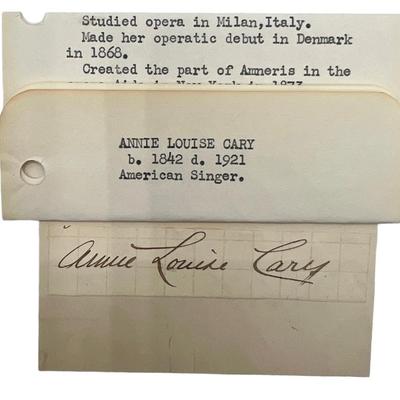 Studied opera in Milan,Italy.
Made her operatic debut in Denmark
in 1868.
Created the part of Amneris in the
ANNIE LOUISE CARY
b. 1842 d. 1921
American Singer.
Annie Louise Cary